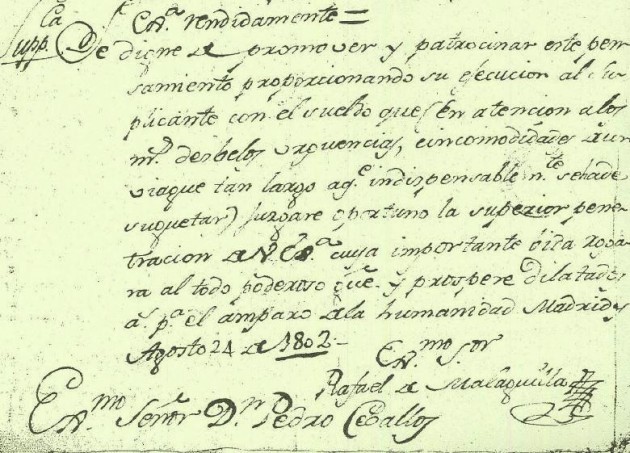 Supp.ca á V. Exª. rendidamente =
Se digne de promover y patrocinar este pen
samiento proporcionando su ejecucion al Su
plicante con el sueldo que (en atencion a los
m.s desbelos urguencias, e incomodidades de un
viague tan largo aq.e indispensable m.te se ha de
suguetar) juzgare oportuno la superior pene
tracion de V. Ex.ª cuya importante vida roga
ra al todo poderoso gue. y prospere dilatados
a.s p.ª el amparo de la humanidad Madrid y
Agosto 24 de 1802.-
Ex.mo S.or
Rafael de Malaguilla
Ex.mo Señor D.n Pedro Ceballos